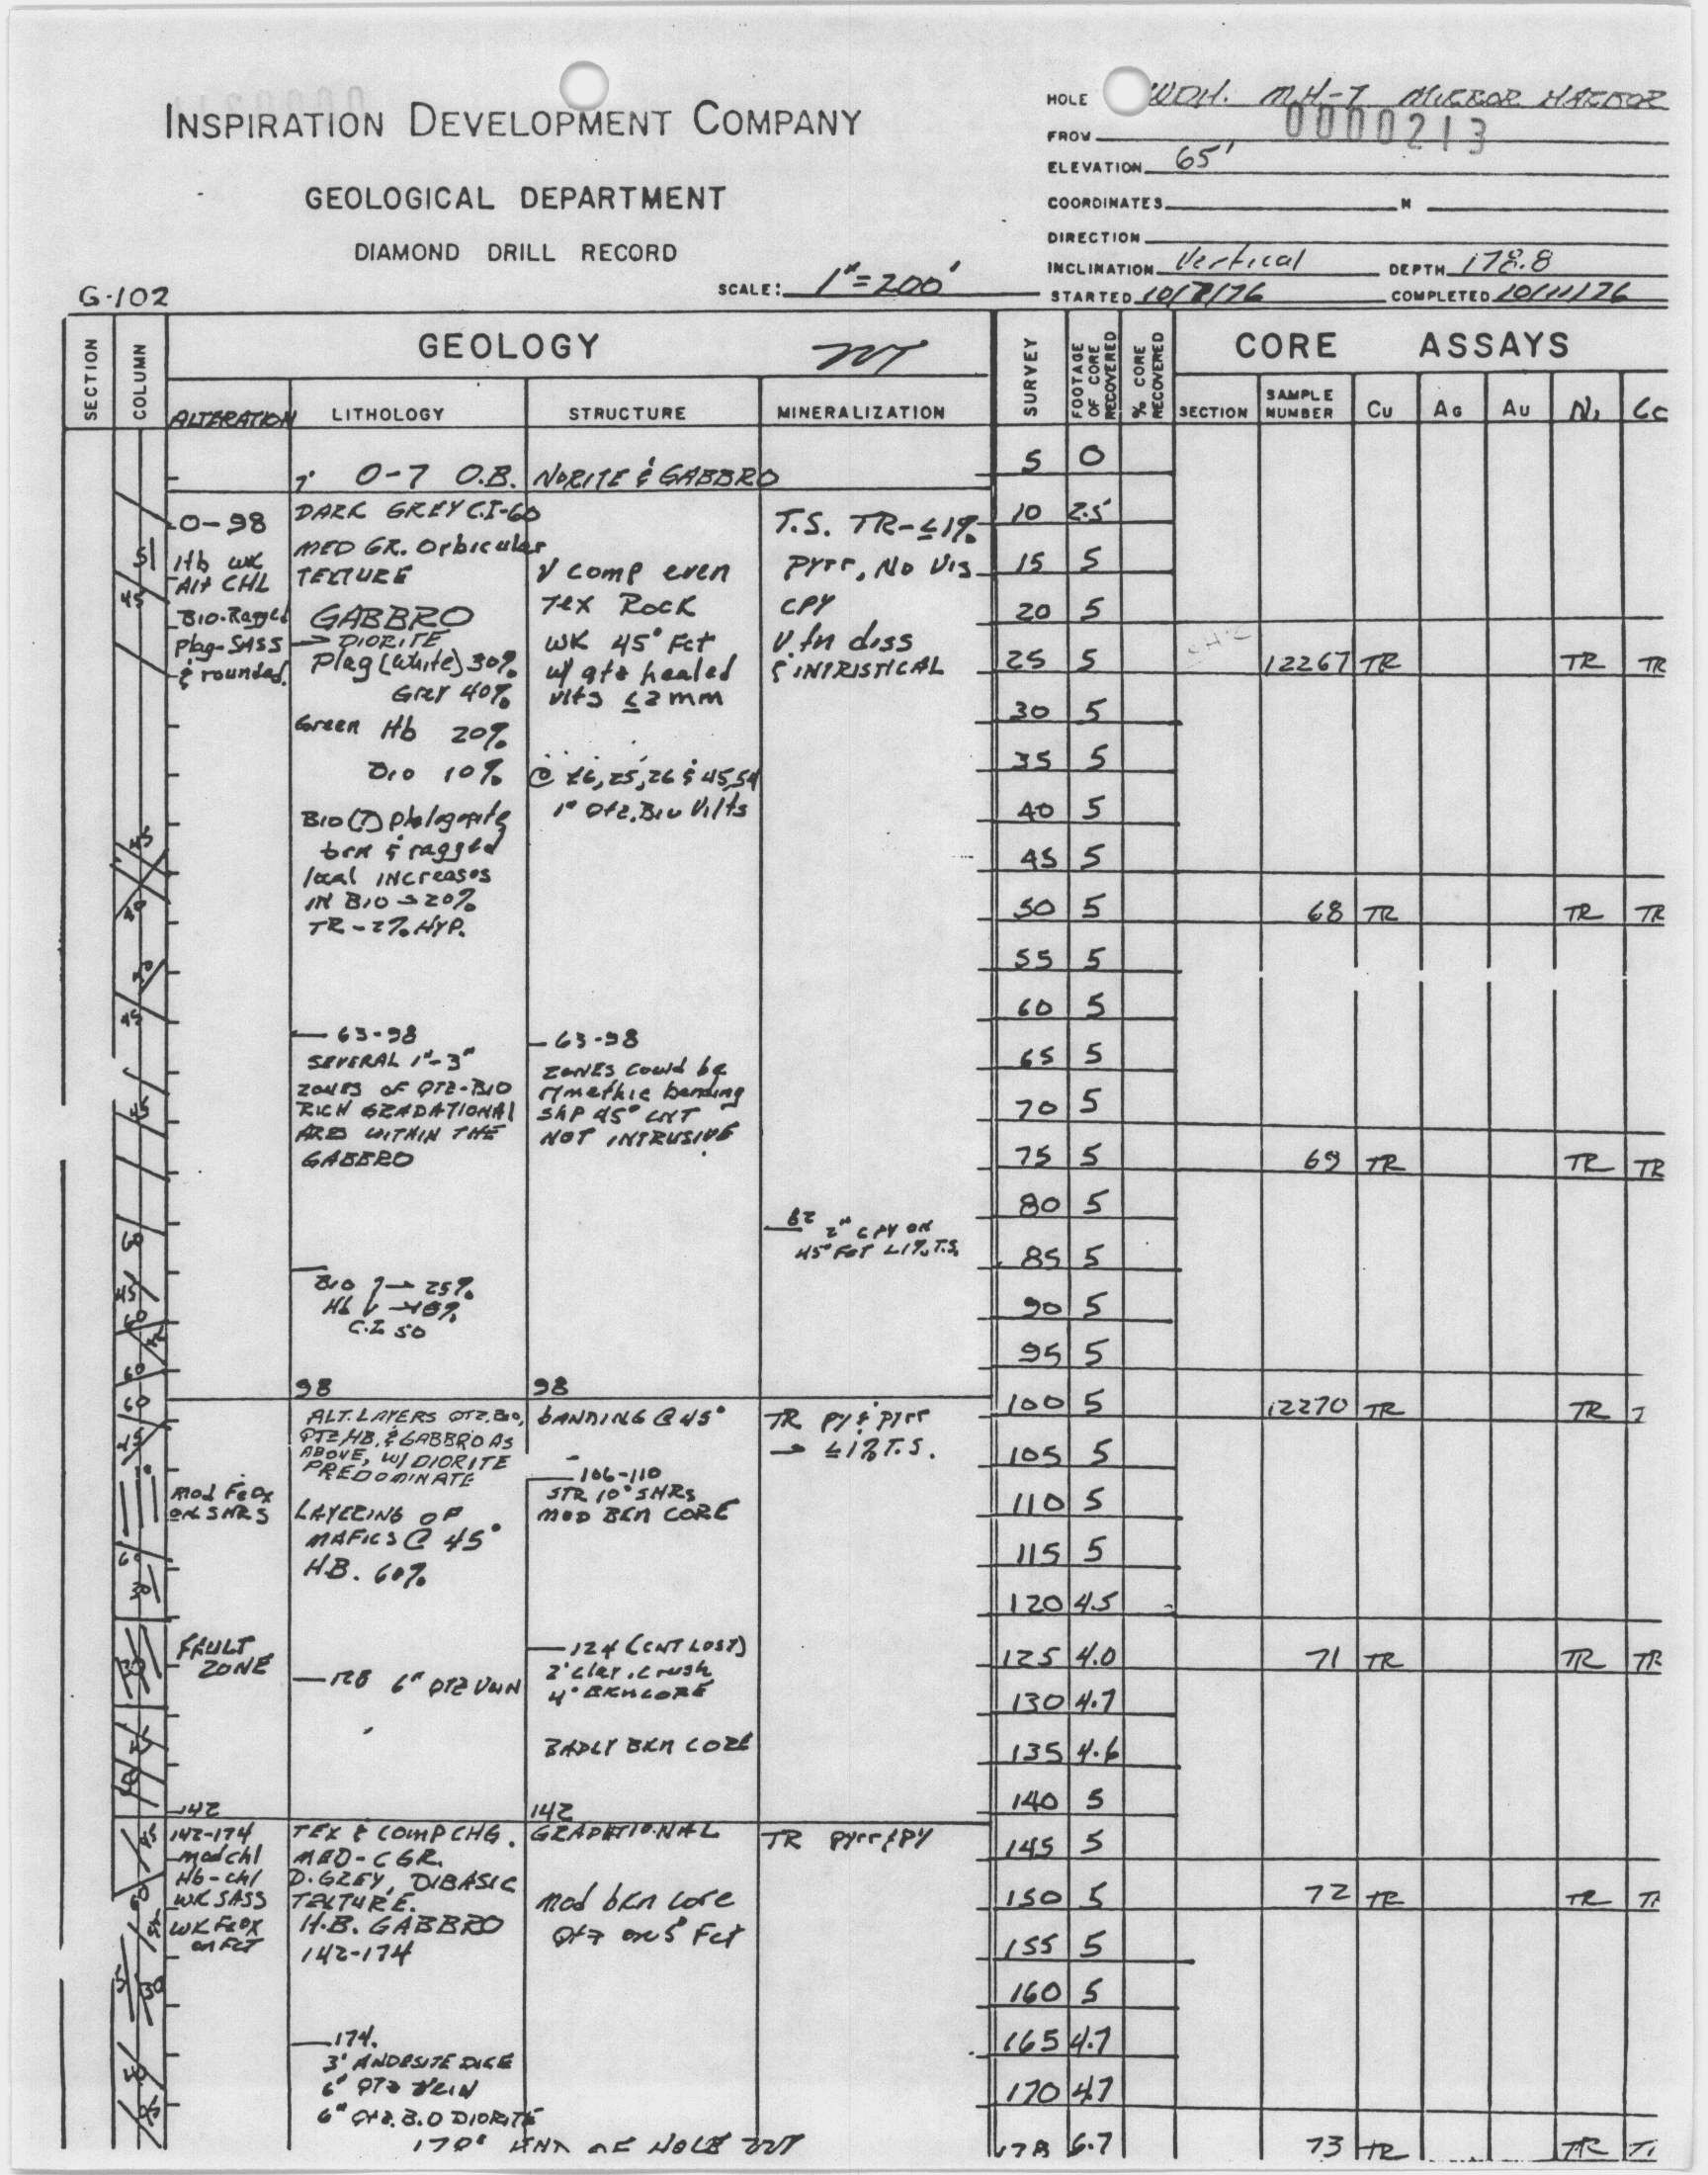 INSPIRATION DEVELOPMENT COMPANY
GEOLOGICAL DEPARTMENT
DIAMOND DRILL RECORD
SCALE: 1"=200'
G-102
HOLE WDH. MH-7 MIRROR HARBOR
0000213
FROM
ELEVATION 65'
COORDINATES N
DIRECTION
INCLINATION Vertical DEPTH 178.8
STARTED 10/7/76 COMPLETED 10/11/76
SECTION COLUMN GEOLOGY SURVEY FOOTAGE OF CORE RECOVERED % CORE RECOVERED CORE ASSAYS
ALTERATION LITHOLOGY STRUCTURE MINERALIZATION SECTION SAMPLE NUMBER Cu AG AU Ni Co
7' 0-7 O.B. NORITE & GABBRO
0-98
Hb WK
Alt CHL
BIO-Ragged
plag-SASS
& rounded.
DARK GREY C.I-60
MED GR. Orbicular
TEXTURE
GABBRO
→ DIORITE
Plag (white) 30%
Grey 40%
Green Hb 20%
BIO 10%
BIO (?) phlogopite
brn & ragged
local INCreases
IN BIO → 20%
TR - 2% HYP.
V comp even
Tex Rock
WK 45° Fct
w/ qtz healed
vlts ≤2mm
@ 16, 25, 26 & 45, 54
1" Qtz. Bio Vlts
T.S. TR-≤1%
Pyrr, No Vis
CPY
V. fn diss
& INTRISTICAL
63-98
SEVERAL 1"-3"
ZONES OF QTZ-BIO
RICH GRADATIONAL
ARE WITHIN THE
GABBRO
63-98
ZONES Could be
rymethic banding
SHP 45° CNT
NOT INTRUSIVE
82 2" CPY ON
45° FCT ≤1% T.S.
BIO ↑→ 25%
Hb ↓
C.I 50
98
98
ALT. LAYERS QTZ. Bio,
QTZ HB. & GABBRO AS
ABOVE, W/ DIORITE
PREDOMINATE
LAYERING OF
MAFICS @ 45°
H.B. 60%
BANDING @ 45°
106-110
STR 10° SHRS
MOD BKN CORE
TR py & pyrr
→ ≤1% T.S.
Mod FeOx
ON SHRS
FAULT
ZONE
128 6" QTZ VEIN
124 (CNT LOST)
2' clay. crush
4' BKN CORE
BADLY BKN CORE
142
142
142-174
mod chl
Hb-chl
WK SASS
WK FeOX
on FCT
TEX & COMP CHG.
MED-C GR.
D. GREY, DIBASIC
TEXTURE.
H.B. GABBRO
142-174
GRADATIONAL
Mod bkn core
Qtz on 5° Fct
TR pyrr & PY
174.
3' ANDESITE DIKE
6" QTZ VEIN
6" Qtz. BIO DIORITE
178' END OF HOLE
5 0
10 2.5'
15 5
20 5
25 5 12267 TR TR TR
30 5
35 5
40 5
45 5
50 5 68 TR TR TR
55 5
60 5
65 5
70 5
75 5 69 TR TR TR
80 5
85 5
90 5
95 5
100 5 12270 TR TR T
105 5
110 5
115 5
120 4.5
125 4.0 71 TR TR TR
130 4.7
135 4.6
140 5
145 5
150 5 72 TR TR TR
155 5
160 5
165 4.7
170 4.7
178 6.7 73 TR TR T